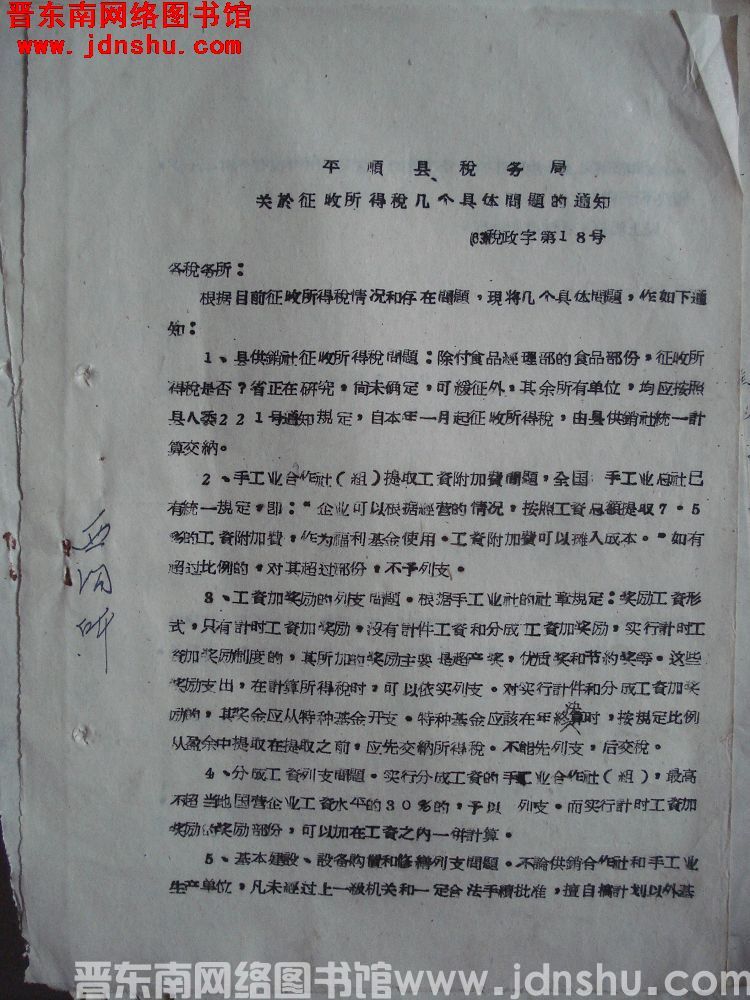 晋东南网络图书馆
www.jdnshu.com
平順县稅务局
关於征收所得稅几个具体問題的通知
(63)稅政字第18号
各稅务所：
根据目前征收所得稅情况和存在問題，現将几个具体問題，作如下通
知：
1、县供銷社征收所得稅問題：除付食品經理部的食品部份，征收所
得稅是否？省正在研究，尚未确定，可緩征外，其余所有单位，均应按照
县人委221号通知規定，自本年一月起征收所得稅，由县供銷社統一計
算交納。
2、手工业合作社（組）提取工資附加費問題，全国手工业总社已
有統一規定，即："企业可以根据經营的情况，按照工資总額提取7·5
%的工資附加費，作为福利基金使用。工資附加費可以摊入成本。"如有
超过比例的，对其超过部份，不予列支。
3、工資加奖励的列支問題。根据手工业社的社章規定：奖励工資形
式，只有計时工資加奖励，沒有計件工資和分成工資加奖励，实行計时工
資加奖励制度的，其所加的奖励主要是超产奖，优质奖和节約奖等。这些
奖励支出，在計算所得稅时，可以依实列支。对实行計件和分成工資加奖
励的，其奖金应从特种基金开支。特种基金应該在年終决算时，按規定比例
从盈余中提取在提取之前，应先交納所得稅。不能先列支，后交稅。
4、分成工資列支問題。实行分成工資的手工业合作社（組），最高
不超当地国营企业工資水平的30%的，予以列支。而实行計时工資加
奖励的奖励部份，可以加在工資之內一併計算。
5、基本建設、設备购置和修繕列支問題。不論供銷合作社和手工业
生产单位，凡未經过上一級机关和一定合法手續批准，擅自搞計划以外基
晋东南网络图书馆www.jdnshu.com